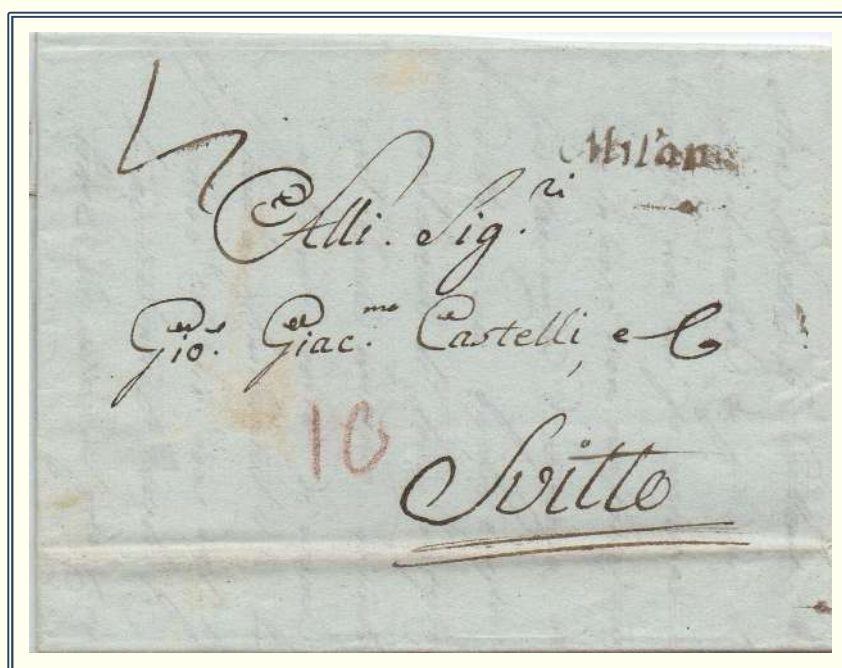 Milan
Alli. Sig.ri
Gio. Giac.mo Castelli, e C
10
Svitto